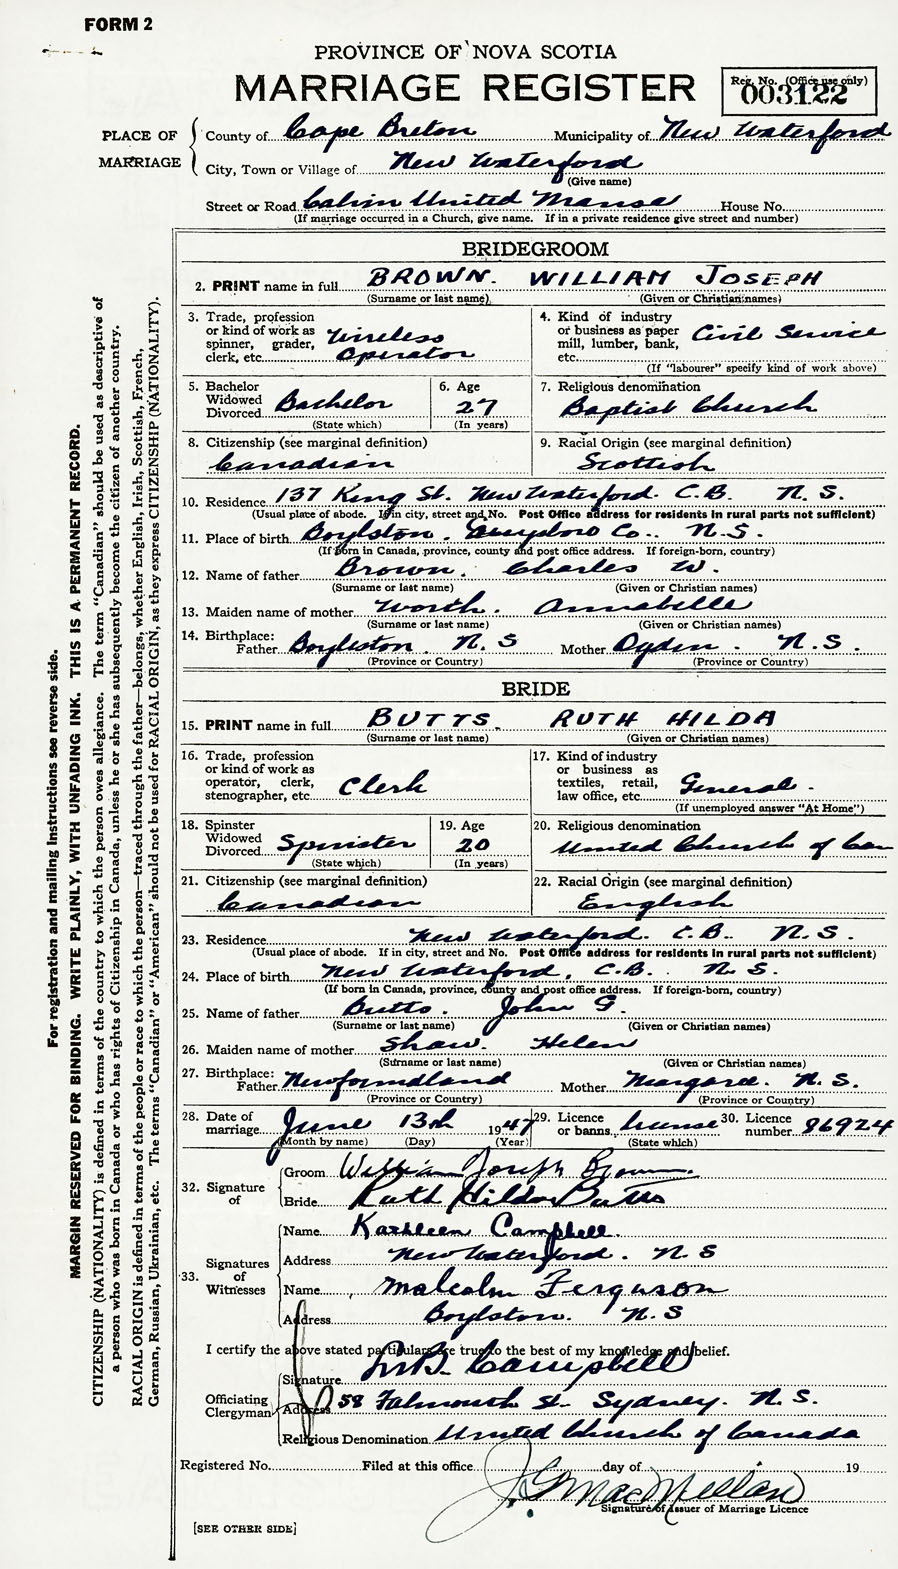 FORM 2
PROVINCE OF NOVA SCOTIA
MARRIAGE REGISTER
Reg. No. (Office use only)
003122
PLACE OF MARRIAGE
County of Cape Breton Municipality of New Waterford
City, Town or Village of New Waterford
(Give name)
Street or Road Calvin United Manse House No.
(If marriage occurred in a Church, give name. If in a private residence give street and number)
BRIDEGROOM
2. PRINT name in full BROWN. WILLIAM JOSEPH
(Surname or last name) (Given or Christian names)
3. Trade, profession or kind of work as spinner, grader, clerk, etc. Wireless Operator
4. Kind of industry or business as paper mill, lumber, bank, etc. Civil Service
(If "labourer" specify kind of work above)
5. Bachelor Widowed Divorced Bachelor
(State which)
6. Age 27
(In years)
7. Religious denomination
Baptist Church
8. Citizenship (see marginal definition)
Canadian
9. Racial Origin (see marginal definition)
Scottish
10. Residence 137 King St. New Waterford. C.B. N.S.
(Usual place of abode. If in city, street and No. Post Office address for residents in rural parts not sufficient)
11. Place of birth Boylston. Guysboro Co.. N.S.
(If born in Canada, province, county and post office address. If foreign-born, country)
12. Name of father Brown. Charles W.
(Surname or last name) (Given or Christian names)
13. Maiden name of mother Worth. Annabelle
(Surname or last name) (Given or Christian names)
14. Birthplace: Father Boylston. N.S Mother Ogden. N.S.
(Province or Country) (Province or Country)
BRIDE
15. PRINT name in full BUTTS. RUTH HILDA
(Surname or last name) (Given or Christian names)
16. Trade, profession or kind of work as operator, clerk, stenographer, etc. Clerk
17. Kind of industry or business as textiles, retail, law office, etc. General.
(If unemployed answer "At Home")
18. Spinster Widowed Divorced Spinister
(State which)
19. Age 20
(In years)
20. Religious denomination
United Church of Can
21. Citizenship (see marginal definition)
Canadian
22. Racial Origin (see marginal definition)
English
23. Residence New Waterford. C.B. N.S.
(Usual place of abode. If in city, street and No. Post Office address for residents in rural parts not sufficient)
24. Place of birth New Waterford, C.B. N.S.
(If born in Canada, province, county and post office address. If foreign-born, country)
25. Name of father Butts. John G.
(Surname or last name) (Given or Christian names)
26. Maiden name of mother Shaw. Helen
(Surname or last name) (Given or Christian names)
27. Birthplace: Father Newfoundland Mother Margaree. N.S.
(Province or Country) (Province or Country)
28. Date of marriage June 13th 1947
(Month by name) (Day) (Year)
29. Licence or banns license
(State which)
30. Licence number 86924
32. Signature of
Groom William Joseph Brown
Bride Ruth Hilda Butts
33. Signatures of Witnesses
Name Kathleen Campbell.
Address New Waterford. N.S
Name Malcolm Ferguson
Address Boylston. N.S
I certify the above stated particulars are true to the best of my knowledge and belief.
Officiating Clergyman
Signature Campbell
Address 58 Falmouth St. Sydney. N.S.
Religious Denomination United Church of Canada
Registered No. Filed at this office day of 19
J. G. MacMillan
Signature of Issuer of Marriage Licence
[SEE OTHER SIDE]
For registration and mailing instructions see reverse side.
MARGIN RESERVED FOR BINDING. WRITE PLAINLY, WITH UNFADING INK. THIS IS A PERMANENT RECORD.
CITIZENSHIP (NATIONALITY) is defined in terms of the country to which the person owes allegiance. The term "Canadian" should be used as descriptive of
a person who was born in Canada or who has rights of Citizenship in Canada, unless he or she has subsequently become the citizen of another country.
RACIAL ORIGIN is defined in terms of the people or race to which the person—traced through the father—belongs, whether English, Irish, Scottish, French,
German, Russian, Ukrainian, etc. The terms "Canadian" or "American" should not be used for RACIAL ORIGIN, as they express CITIZENSHIP (NATIONALITY).